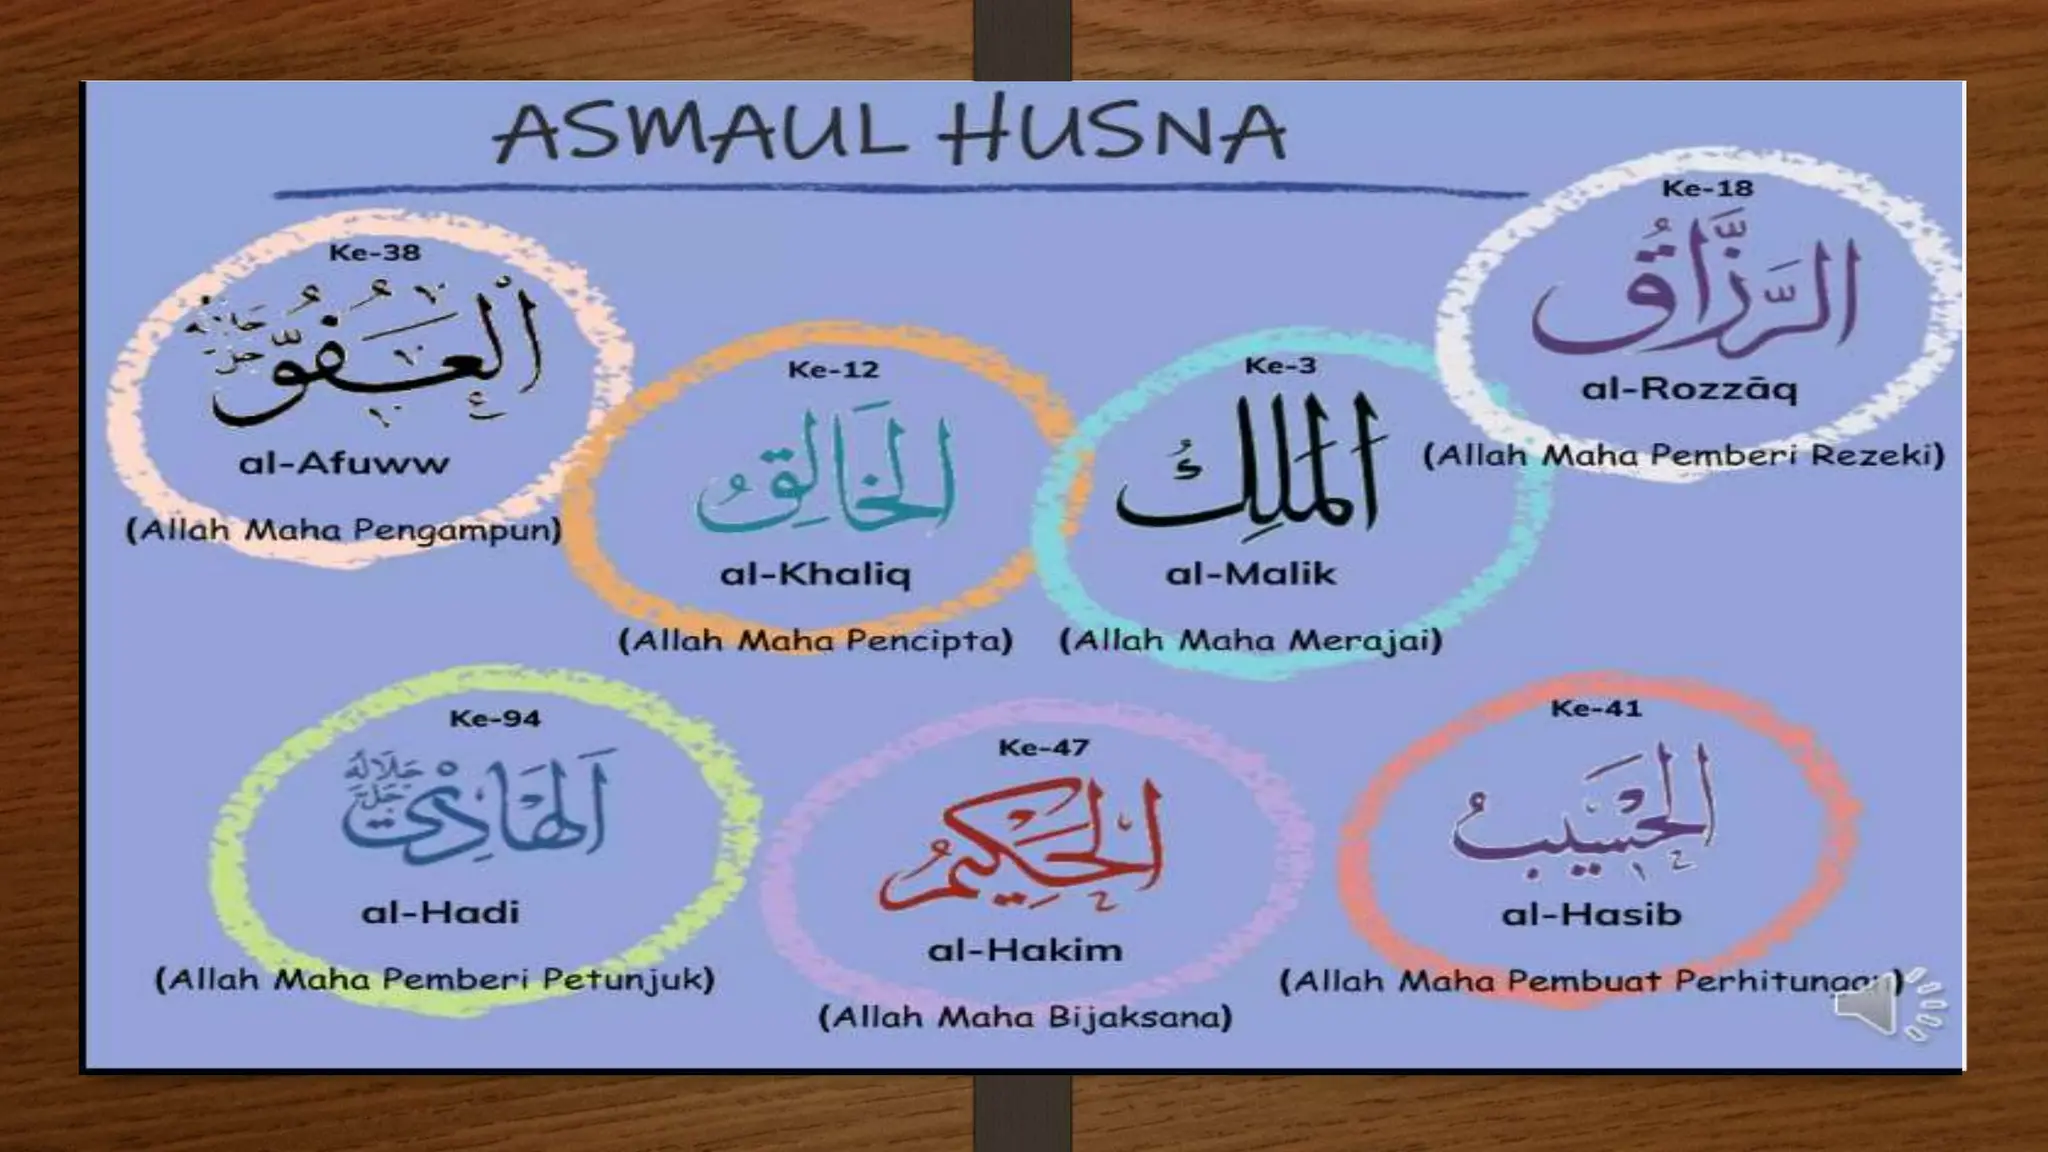 ASMAUL HUSNA
Ke-38
الْعَفُوُّ
al-Afuww
(Allah Maha Pengampun)
Ke-12
الخَالِقُ
al-Khaliq
(Allah Maha Pencipta)
Ke-3
المَلِكُ
al-Malik
(Allah Maha Merajai)
Ke-18
الرَّزَّاقُ
al-Rozzāq
(Allah Maha Pemberi Rezeki)
Ke-94
الهَادِيْ
جل جلاله
al-Hadi
(Allah Maha Pemberi Petunjuk)
Ke-47
الحَكِيمُ
al-Hakim
(Allah Maha Bijaksana)
Ke-41
الحَسِيبُ
al-Hasib
(Allah Maha Pembuat Perhitungan)